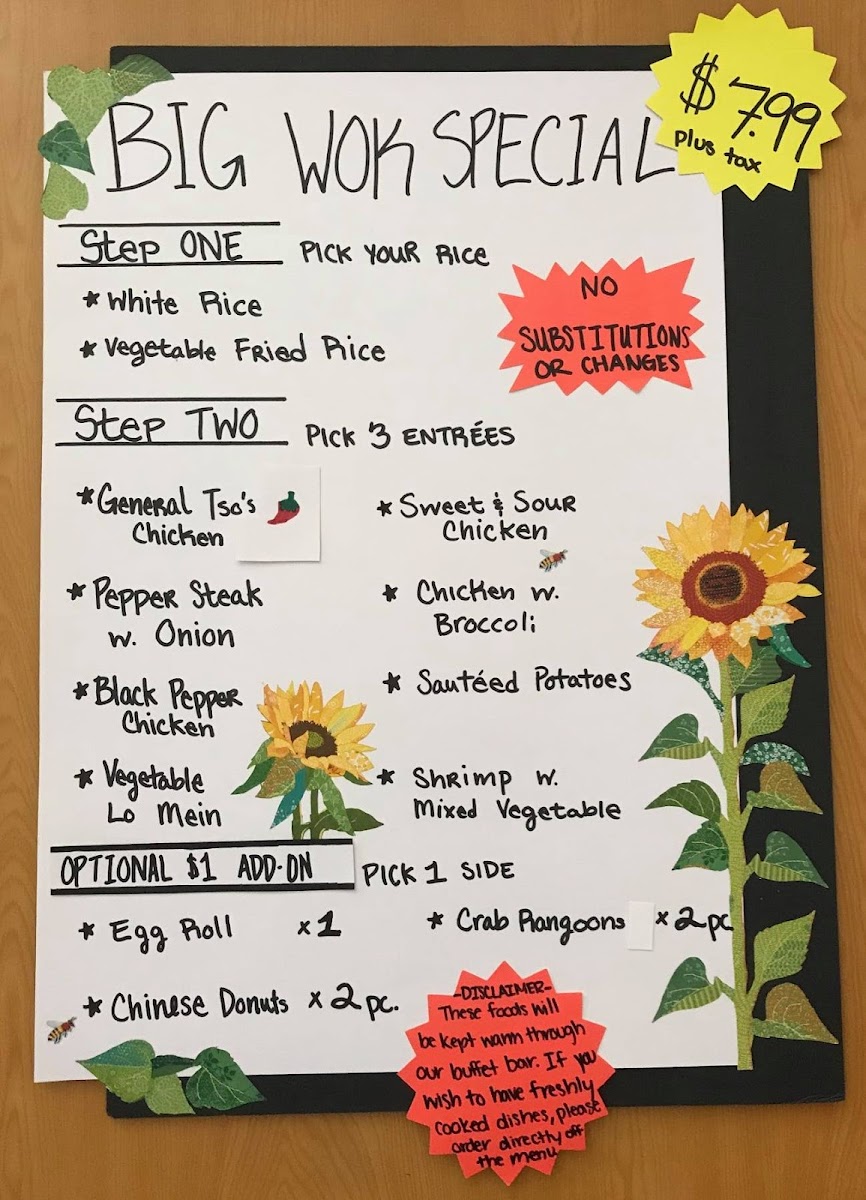 BIG WOK SPECIAL
$7.99
plus tax
Step ONE PICK YOUR RICE
* White Rice
* Vegetable Fried Rice
NO
SUBSTITUTIONS
OR CHANGES
Step TWO PICK 3 ENTRÉES
* General Tso's
Chicken
* Sweet & Sour
Chicken
* Pepper Steak
w. Onion
* Chicken w.
Broccoli
* Black Pepper
Chicken
* Sautéed Potatoes
* Vegetable
Lo Mein
* Shrimp w.
Mixed Vegetable
OPTIONAL $1 ADD-ON PICK 1 SIDE
* Egg Roll x1
* Crab Rangoons x2pc
* Chinese Donuts x2pc.
-DISCLAIMER-
These foods will
be kept warm through
our buffet bar. If you
wish to have freshly
cooked dishes, please
order directly off
the menu